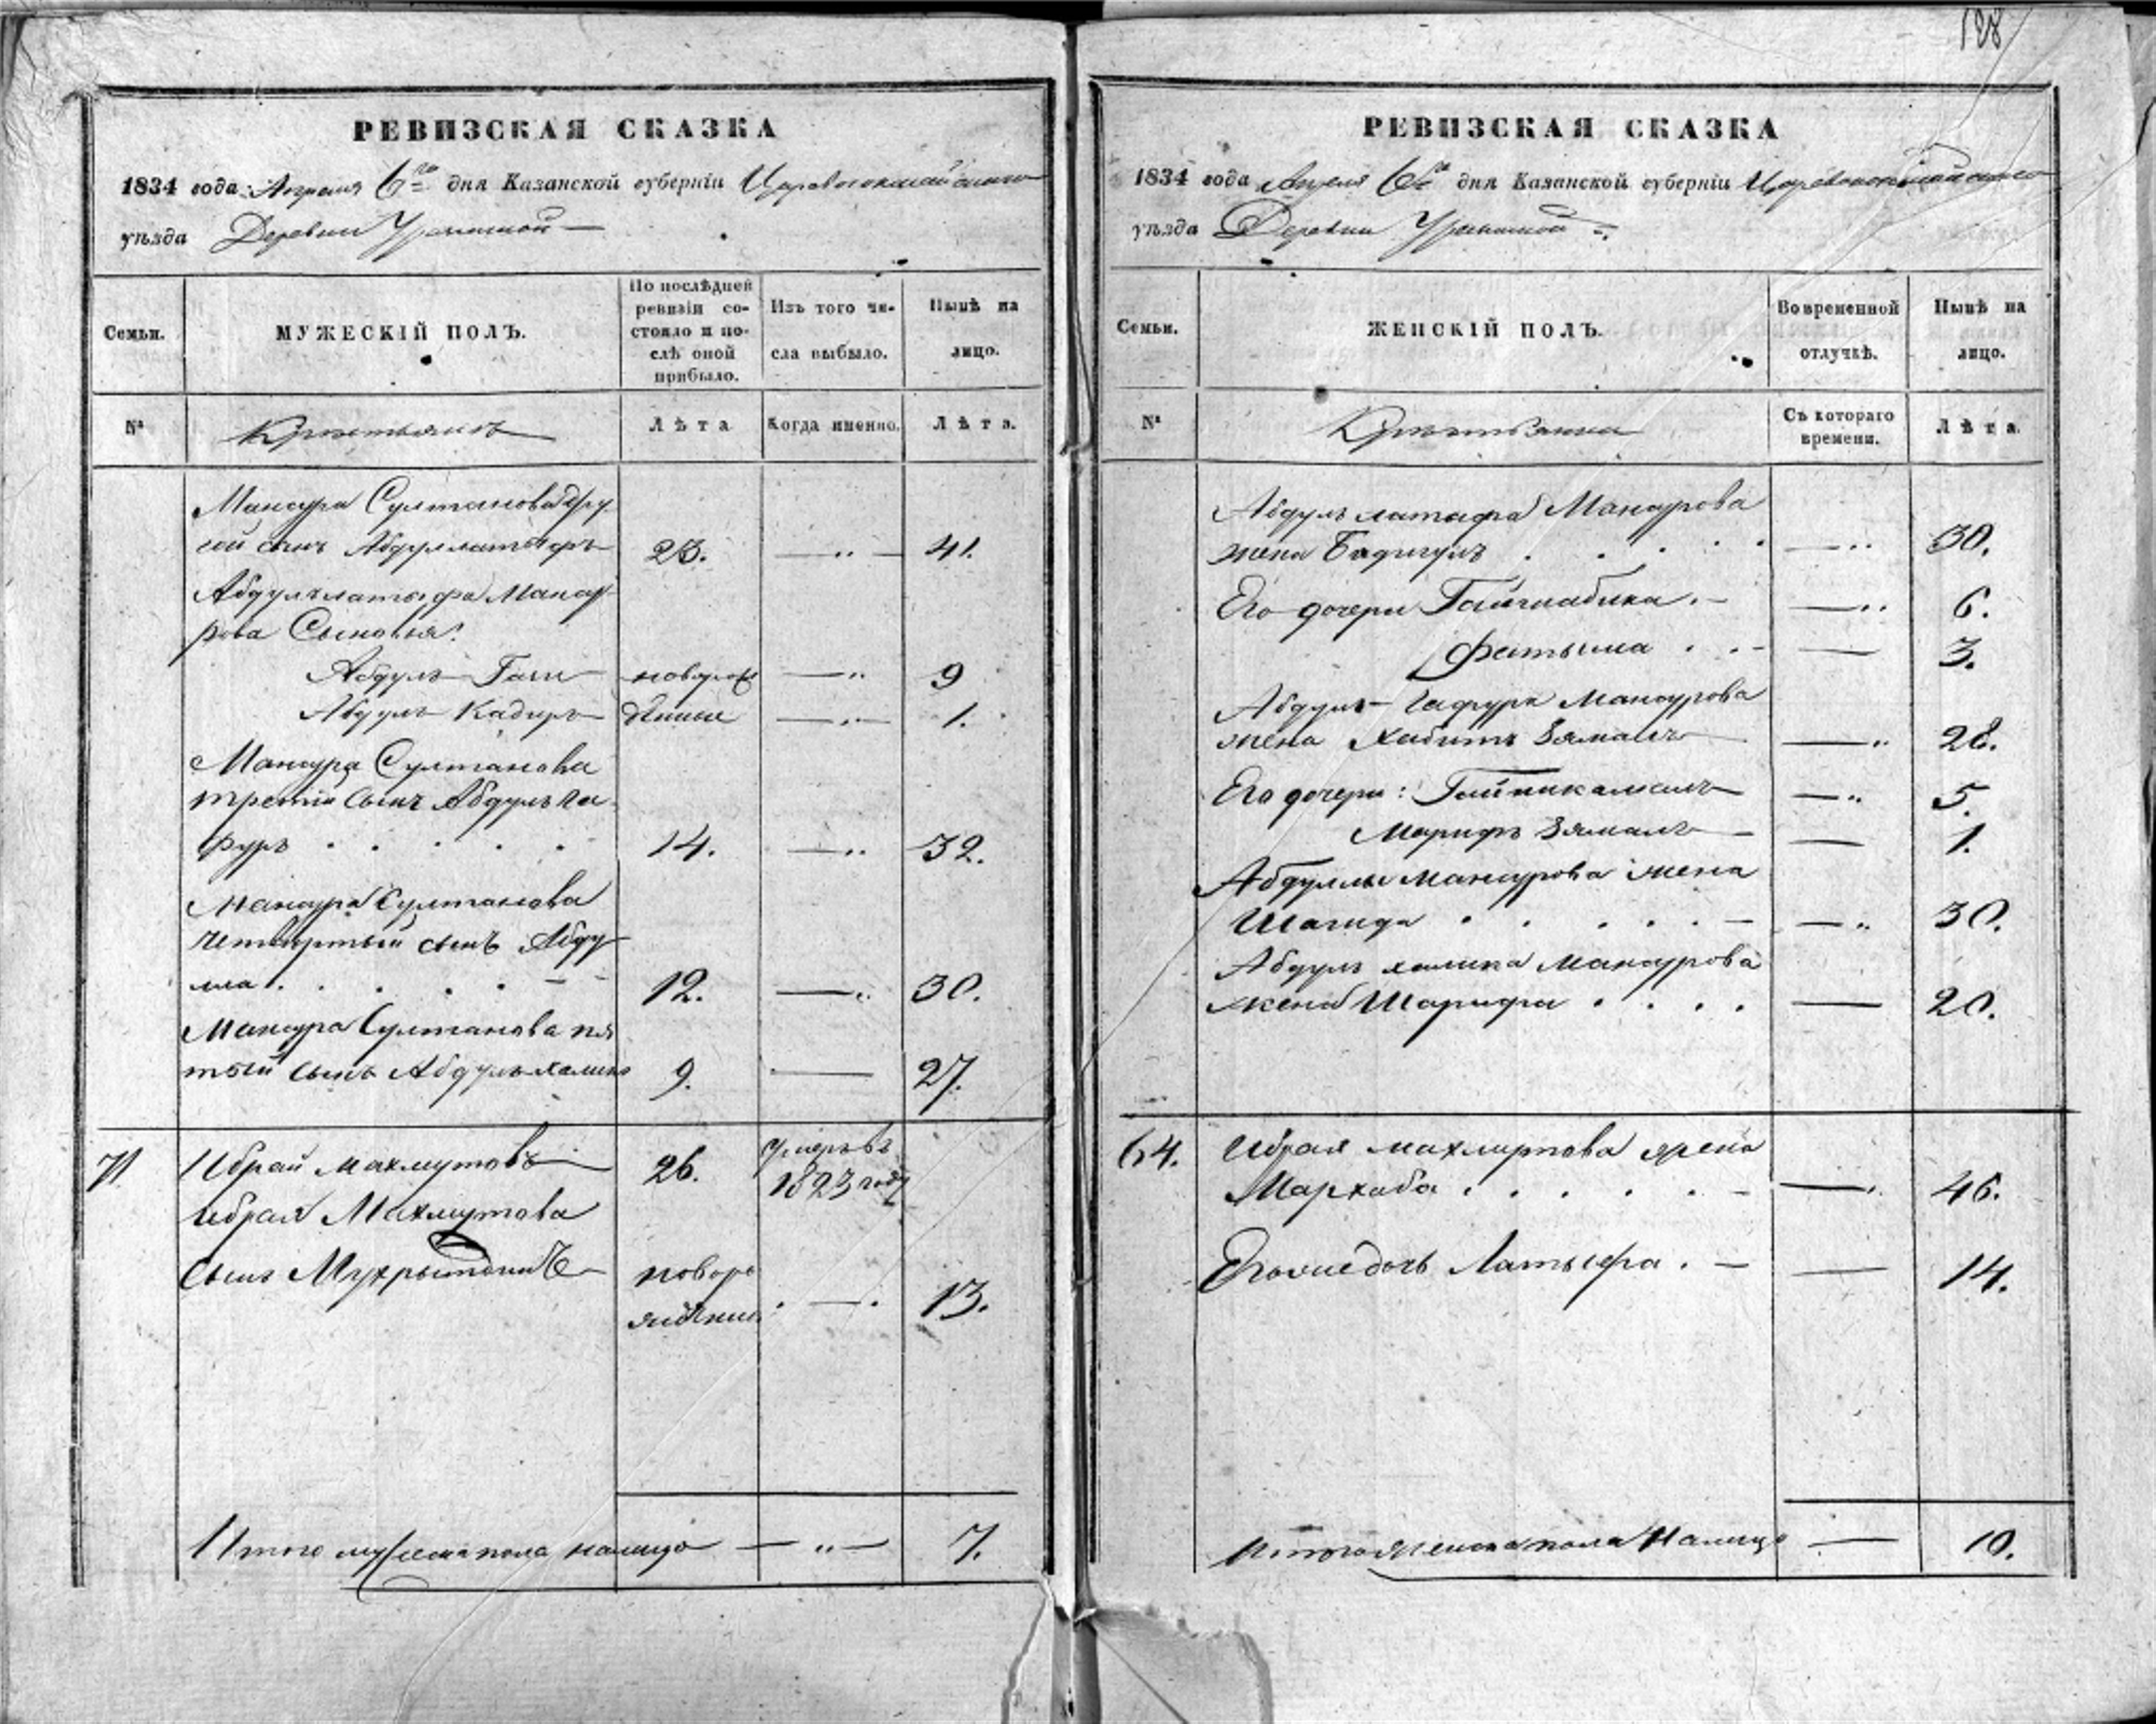 128
РЕВИЗСКАЯ СКАЗКА
1834 года Апреля 6го дня Казанской губерніи Царевококшайскаго
уѣзда Деревни
Семьи.
МУЖЕСКІЙ ПОЛЪ.
По послѣдней
ревизіи со-
стояло и по-
слѣ оной
прибыло.
Изъ того чи-
сла выбыло.
Нынѣ на
лицо.
№
Крестьянъ
Лѣта
Когда именно.
Лѣта.
Мансура Султанова дру
гой сынъ Абдуллатифъ 23. —„— 41.
Абдуллатифа Мансу
рова Сыновья:
Абдулъ Гани новорож —„ 9
Абдулъ Кадыръ денные —„— 1.
Мансура Султанова
третий сынъ Абдулъ га
фуръ . . . . . 14. —„ 32.
Мансура Султанова
четвертый сынъ Абду
лла . . . . . — - 12. —„ 30.
Мансура Султанова пя
тый сынъ Абдулъ халикъ 9. — 27.
71 Ибрай Махмутовъ 26. умеръ въ
1823 году
Ибрая Махмутова
Сынъ новоро
жденный . — . 13.
Итого мужеска пола налицо —„— 7.
РЕВИЗСКАЯ СКАЗКА
1834 года Апреля 6го дня Казанской губерніи Царевококшайскаго
уѣзда Деревни
Семьи.
ЖЕНСКІЙ ПОЛЪ.
Во временной
отлучкѣ.
Нынѣ на
лицо.
№
Съ котораго
времени.
Лѣта.
Абдулъ латифа Мансурова
жена Бадигулъ . . . . . —„ 30.
Его дочери —„ 6.
Фатыма . . - — 3.
Абдулъ Гафура Мансурова
жена Хабибъ Зямалъ —„ 28.
Его дочери: —„ 5.
Марифъ Зямалъ — 1.
Абдуллы Мансурова жена
Шагида . . . . . — —„ 30.
Абдулъ халика Мансурова
жена Шарифа . . . . — 20.
64. Ибрая Махмутова жена
Мархаба . . . . . - —. 46.
Его же дочь Латыфа . — — 14.
Итого женска пола Налицо — 10.